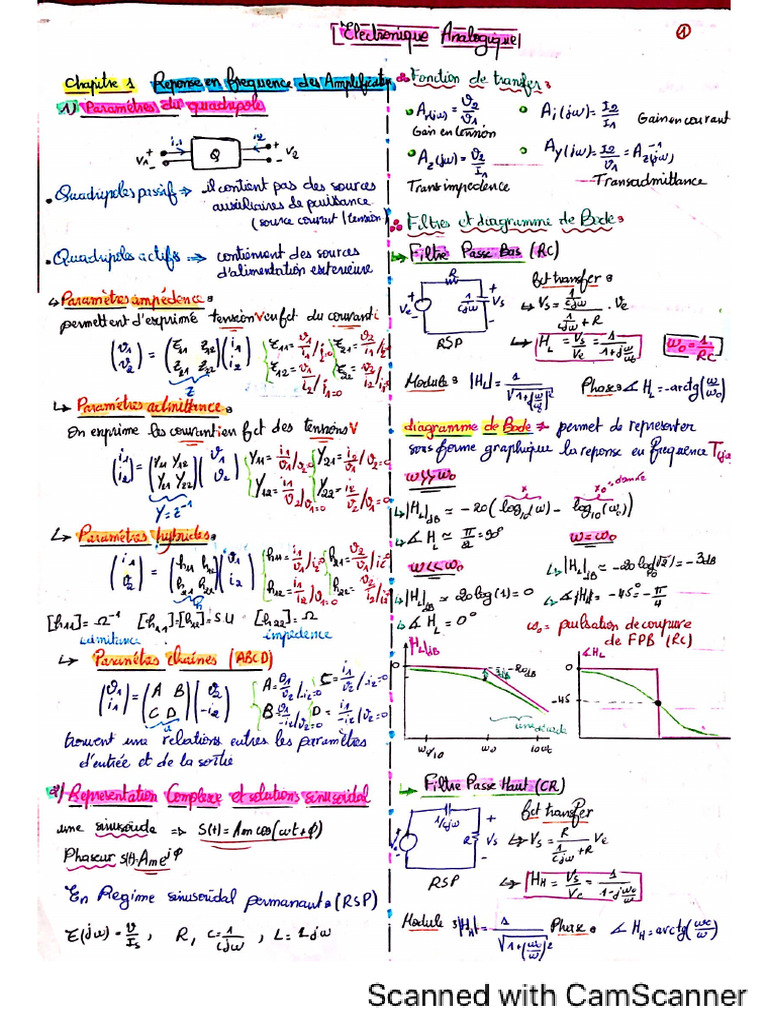 Electronique Analogique
1
Chapitre 1 Reponse en frequence des Amplificateur
1) Paramètres du quadripole
i1 i2
+ V1 - Q + V2 -
• Quadripoles passif ⇒ il contient pas des sources
auxiliaires de puissance
(source courant / tension)
• Quadripoles actifs ⇒ contiennent des sources
d'alimentation exterieure
↳ Paramètres impédence :
permettent d'exprimé tension V en fct du courant i
(v1 v2) = (Z11 Z12 Z21 Z22)(i1 i2)
Z
Z11 = v1/i1 /i2=0 Z21 = v2/i1 /i2=0
Z12 = v1/i2 /i1=0 Z22 = v2/i2 /i1=0
↳ Paramètres admittance :
On exprime les courant i en fct des tensions V
(i1 i2) = (Y11 Y12 Y21 Y22)(v1 v2)
Y = Z⁻¹
Y11 = i1/v1 /v2=0 Y21 = i2/v1 /v2=0
Y12 = i1/v2 /v1=0 Y22 = i2/v2 /v1=0
↳ Paramètres hybrides :
(i1 v2) = (h11 h12 h21 h22)(v1 i2)
h11 = i1/v1 /i2=0 h21 = v2/v1 /i2=0
h12 = i1/i2 /v1=0 h22 = v2/i2 /v1=0
[h11] = Ω⁻¹ [h21] = [h12] = S.U [h22] = Ω
admitance impédence
↳ Paramètres chaines (ABCD)
(v1 i1) = (A B C D)(v2 -i2)
a
A = v1/v2 /-i2=0 C = i1/v2 /-i2=0
B = v1/-i2 /v2=0 D = i1/-i2 /v2=0
trouvent une relations entres les paramètres
d'entrée et de la sortie
2) Representation Complexe et solutions sinusoidal
une sinusoide ⇒ S(t) = Am cos(ωt + φ)
Phaseur s(t) = Am e^jφ
En Regime sinusoidal permanant : (RSP)
Z(jω) = v/Is , R, C = 1/Cjω , L = Ljω
Fonction de transfer :
• Av(jω) = v2/v1 • Ai(jω) = I2/I1 Gain en courant
Gain en tension
• Az(jω) = v2/I1 Ay(jω) = I2/v1 = Az⁻¹(jω)
Transimpedence Transadmittance
Filtres et diagramme de Bode :
↳ Filtre Passe Bas (RC)
R
Ve 1/Cjω Vs
RSP
fct transfer :
↳ Vs = (1/Cjω)/(1/Cjω + R) . Ve
↳ HL = Vs/Ve = 1/(1 + jω/ω0) ω0 = 1/RC
Module : |HL| = 1/√(1 + (ω/ω0)²) Phase : ∡ HL = -arctg(ω/ω0)
diagramme de Bode ⇒ permet de representer
sous forme graphique la reponse en frequence T(jω)
ω >> ω0
↳ |HL|dB ≃ -20(log10(ω) - log10(ωc))
↳ ∡ HL ≃ π/2 = 90°
ω = ω0
↳ |HL|dB ≃ -20log(√2) = -3dB
↳ ∡|HL| = -45° = -π/4
ω << ω0
↳ |HL|dB ≃ 20log(1) = 0
↳ ∡ HL = 0°
ω0 = pulsation de coupure
de FPB (RC)
|HL|dB
0 -3dB -20dB
une décade
ω0/10 ω0 10ω0
∡HL
0
-45
↳ Filtre Passe Haut (CR)
1/Cjω
R Vs
RSP
fct transfer
↳ Vs = R/(1/Cjω + R) Ve
↳ HH = Vs/Ve = 1/(1 - jω0/ω)
Module : |HH| = 1/√(1 + (ωc/ω)²) Phase : ∡ HH = arctg(ωc/ω)
Scanned with CamScanner